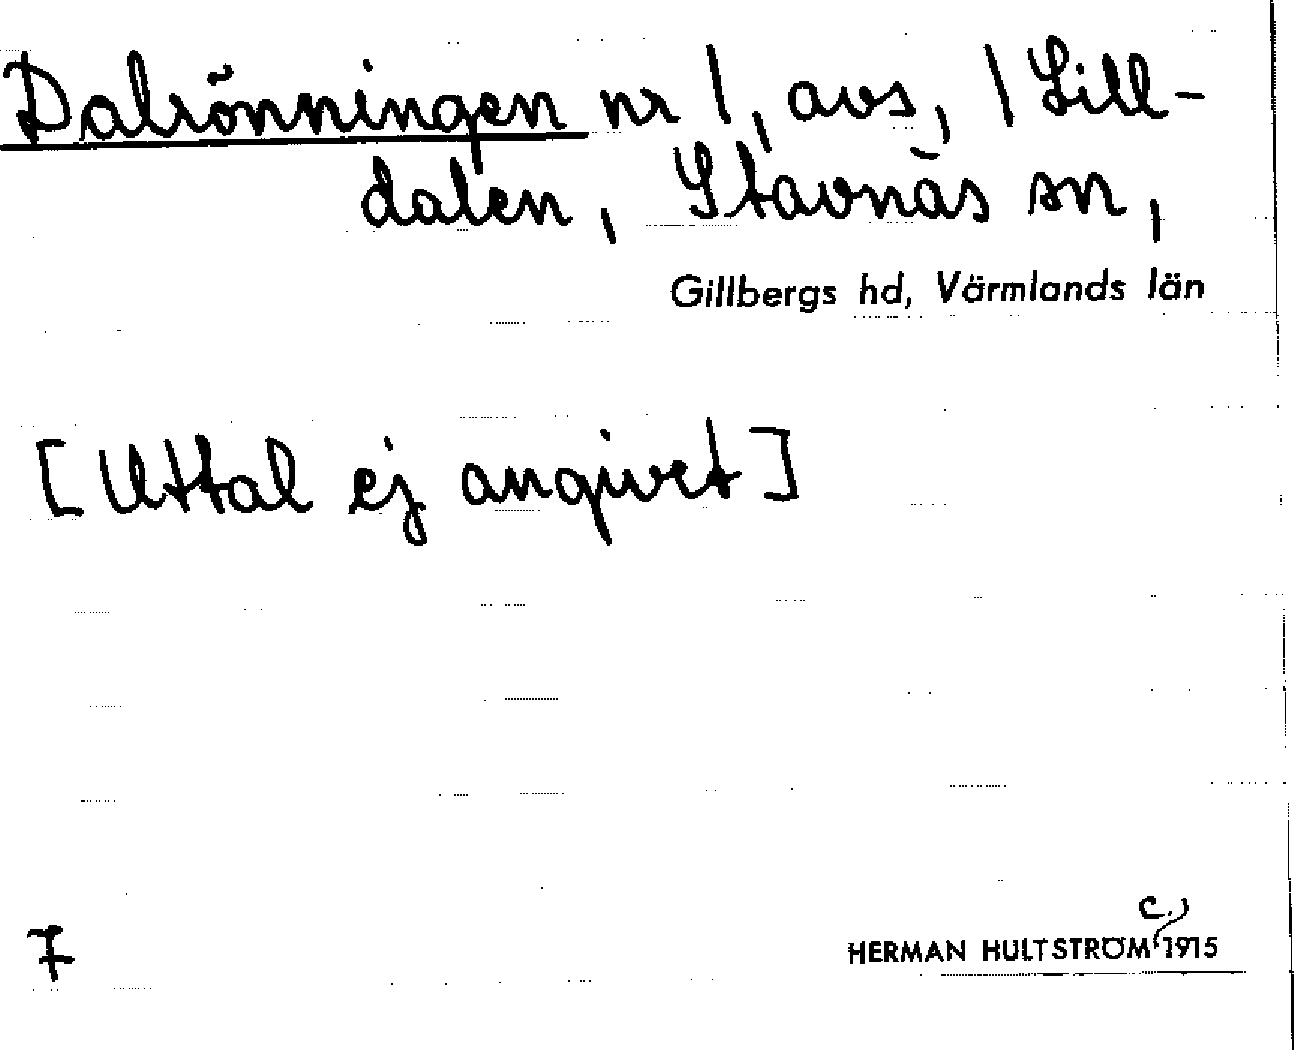 Dalrönningen nr 1, avs, 1 Lill-
dalen, Stavnäs sn,
Gillbergs hd, Värmlands län
[Uttal ej angivet]
7
c.,
HERMAN HULTSTRÖM 1915